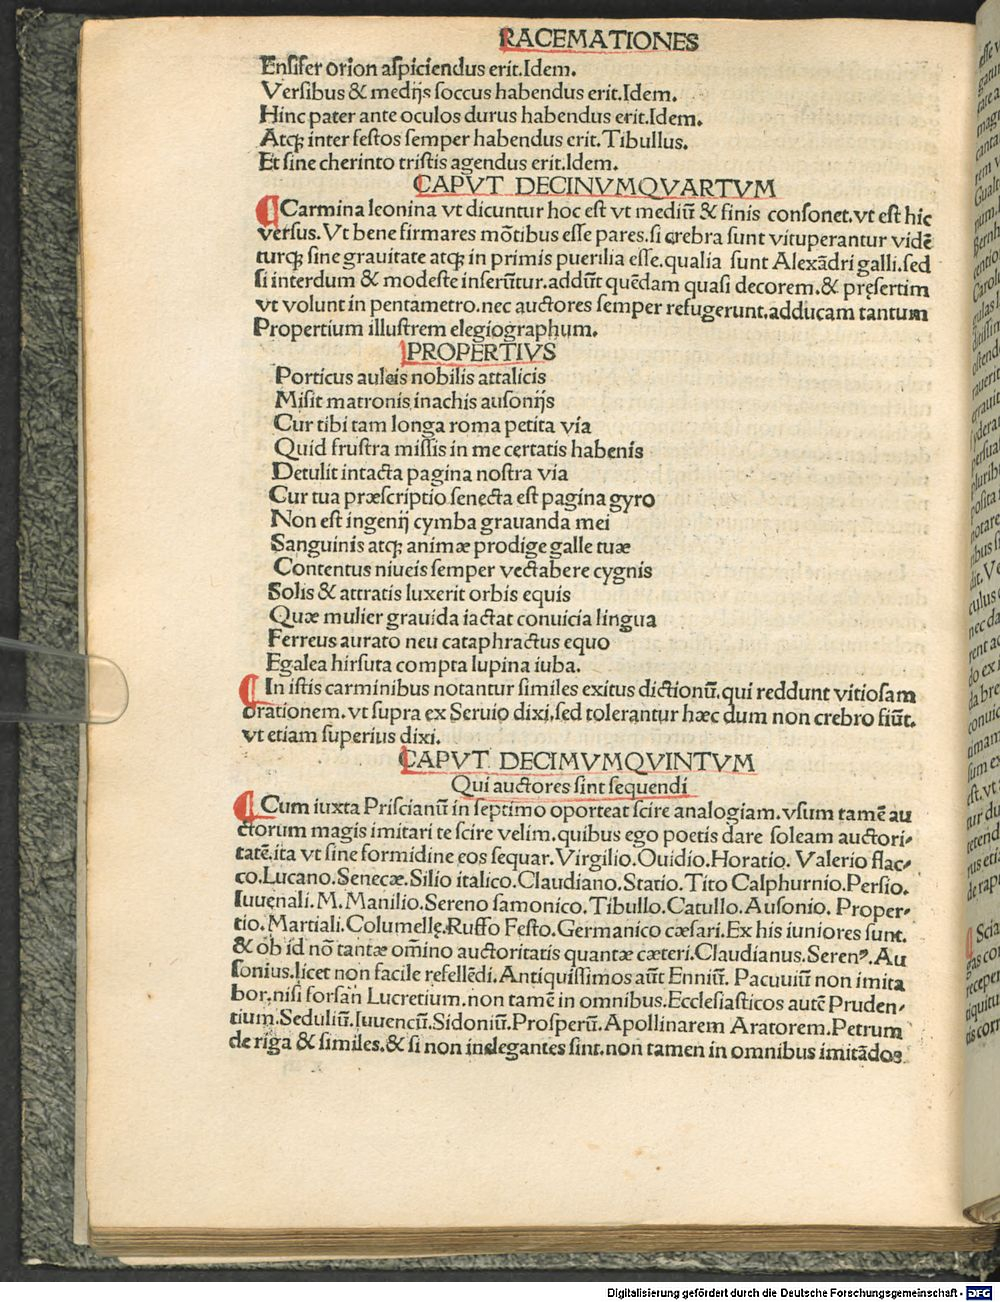 RACEMATIONES
Enſifer orion aſpiciendus erit.Idem.
Verſibus & medijs ſoccus habendus erit.Idem.
Hinc pater ante oculos durus habendus erit.Idem.
Atqꝫ inter feſtos ſemper habendus erit.Tibullus.
Et ſine cherinto triſtis agendus erit.Idem.
CAPVT DECINVMQVARTVM
Carmina leonina vt dicuntur hoc eſt vt mediū & finis conſonet.vt eſt hic
verſus.Vt bene firmares mōtibus eſſe pares.ſi crebra ſunt vituperantur vidē
turqꝫ ſine grauitate atqꝫ in primis puerilia eſſe.qualia ſunt Alexādri galli.ſed
ſi interdum & modeſte inſerūtur.addūt quēdam quaſi decorem.& pręſertim
vt volunt in pentametro.nec auctores ſemper refugerunt.adducam tantum
Propertium illuſtrem elegiographum.
PROPERTIVS
Porticus auleis nobilis attalicis
Miſit matronis inachis auſonijs
Cur tibi tam longa roma petita via
Quid fruſtra miſſis in me certatis habenis
Detulit intacta pagina noſtra via
Cur tua præſcriptio ſenecta eſt pagina gyro
Non eſt ingenij cymba grauanda mei
Sanguinis atqꝫ animæ prodige galle tuæ
Contentus niueis ſemper vectabere cygnis
Solis & attratis luxerit orbis equis
Quæ mulier grauida iactat conuicia lingua
Ferreus aurato neu cataphractus equo
Egalea hirſuta compta lupina iuba.
In iſtis carminibus notantur ſimiles exitus dictionū.qui reddunt vitioſam
orationem.vt ſupra ex Seruio dixi.ſed tolerantur hæc dum non crebro fiūt.
vt etiam ſuperius dixi.
CAPVT DECIMVMQVINTVM
Qui auctores ſint ſequendi
Cum iuxta Priſcianū in ſeptimo oporteat ſcire analogiam.vſum tamē au
ctorum magis imitari te ſcire velim.quibus ego poetis dare ſoleam auctori⸗
tatē.ita vt ſine formidine eos ſequar.Virgilio.Ouidio.Horatio. Valerio flac⸗
co.Lucano.Senecæ.Silio italico.Claudiano.Statio.Tito Calphurnio.Perſio.
Iuuenali.M.Manilio.Sereno ſamonico.Tibullo.Catullo.Auſonio. Proper⸗
tio.Martiali.Columellę.Ruffo Feſto.Germanico cæſari.Ex his iuniores ſunt.
& ob id nō tantæ om̄ino auctoritatis quantæ cæteri.Claudianus.Serenꝰ.Au
ſonius.licet non facile refellēdi.Antiquiſſimos aūt Enniū. Pacuuiū non imita
bor,niſi forſan Lucretium.non tamē in omnibus.Eccleſiaſticos autē Pruden⸗
tium.Seduliū.Iuuencū.Sidoniū.Proſperū.Apollinarem Aratorem.Petrum
de riga & ſimiles.& ſi non indegantes ſint.non tamen in omnibus imitādos
Digitalisierung gefördert durch die Deutsche Forschungsgemeinschaft - DFG